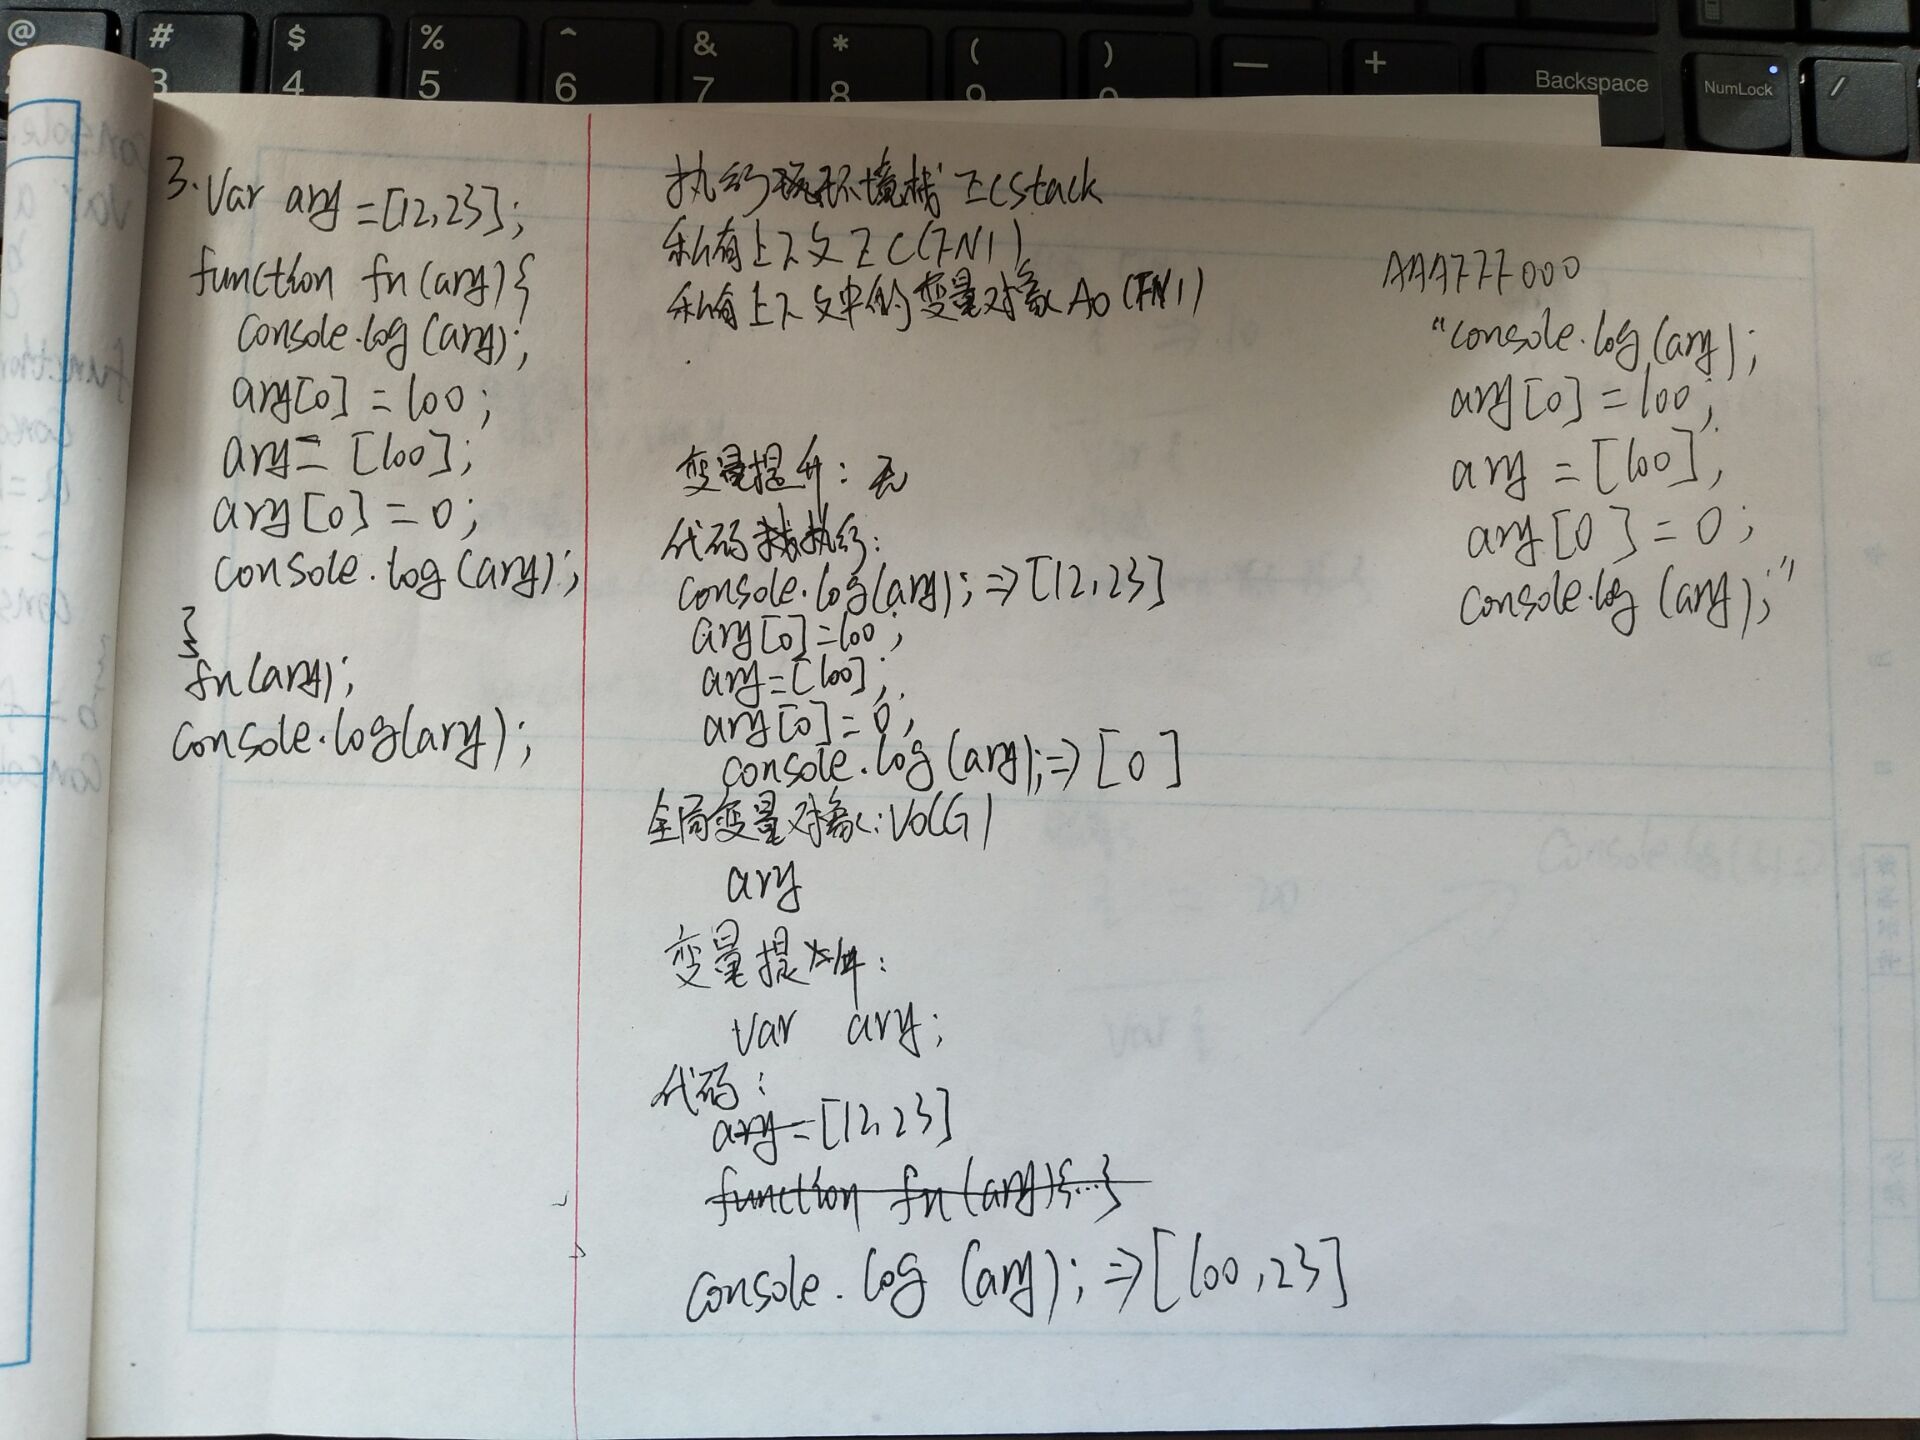 @ # $ % ^ & * ( ) — +
3 4 5 6 7 8 9 Backspace NumLock /
3. Var ary = [12,23];
function fn(ary){
console.log(ary);
ary[0] = 100;
ary = [100];
ary[0] = 0;
console.log(ary);
}
fn(ary);
console.log(ary);
执行环境栈 ECStack
私有上下文 EC(FN1)
私有上下文中的变量对象 AO(FN1)
变量提升: 无
代码执行:
console.log(ary); => [12,23]
ary[0]=100;
ary=[100];
ary[0]=0;
console.log(ary); => [0]
全局变量对象: VO(G)
ary
变量提升:
Var ary;
代码:
ary=[12,23]
function fn(ary){...}
console.log (ary); => [100,23]
AAAFFF000
"console.log(ary);
ary[0] = 100;
ary = [100];
ary[0] = 0;
console.log (ary);"